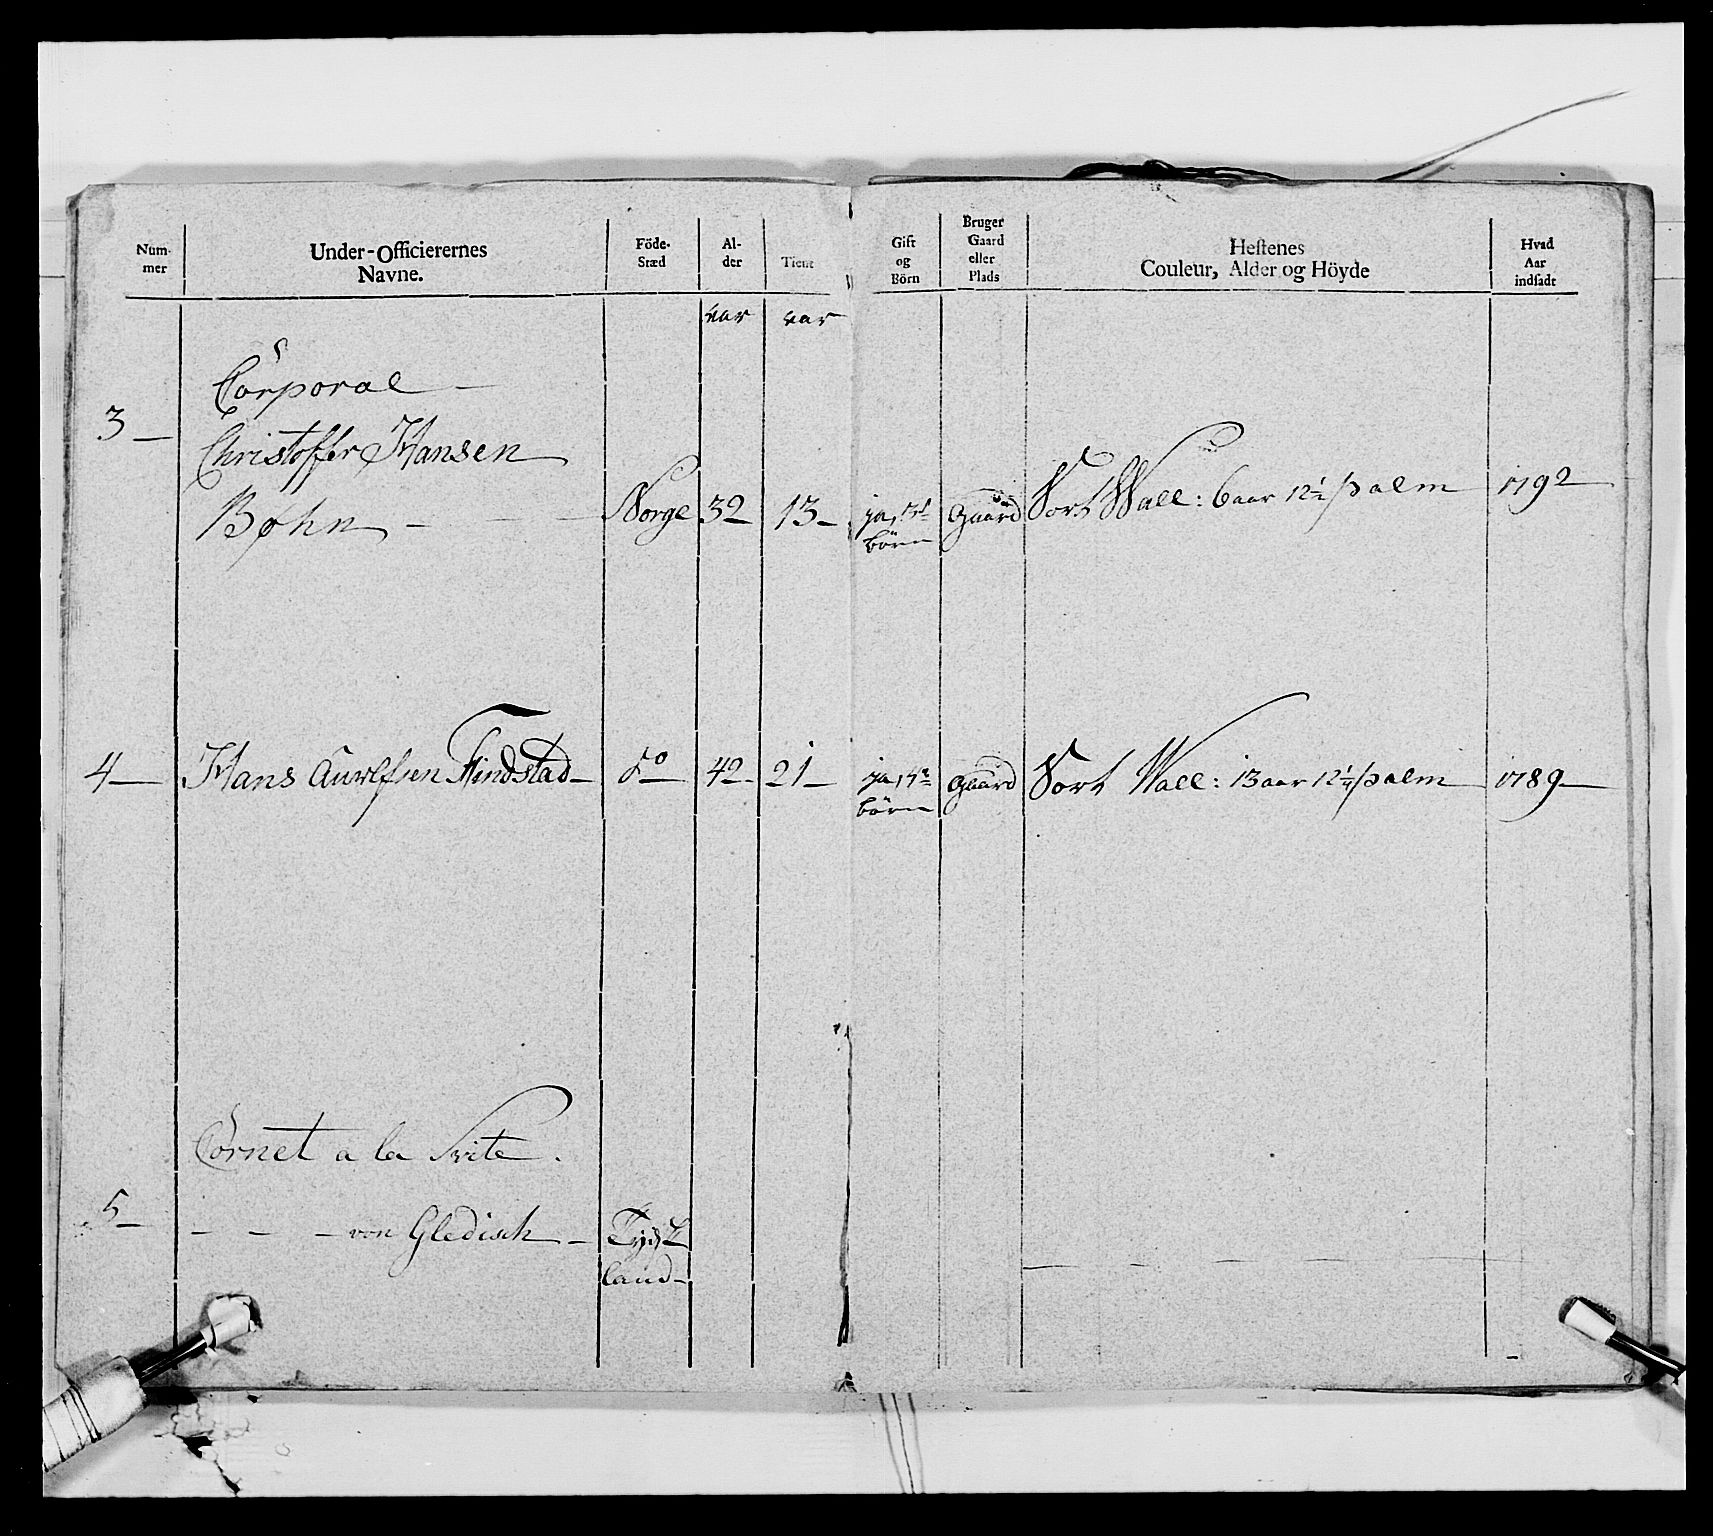 Num-
mer
Under-Officierernes
Navne.
Föde-
Stæd
Al-
der
Tient
Gift
og
Börn
Bruger
Gaard
eller
Plads
Hestenes
Couleur, Alder og Höyde
Hvad
Aar
indsadt
aar aar
Corporal —
3 —
Christoffer Hansen
Bøhn — Norge 32 13 — ja, börn Gaard Sort Wall: 6 aar 12½ palm 1792
4 — Hans Findstad — do 42 21 — ja, 4 börn Gaard Sort Wall: 13 aar 12¼ palm 1789 —
Cornet a la Svite.
5 — — — — von Gledisch — Tydsk
land —